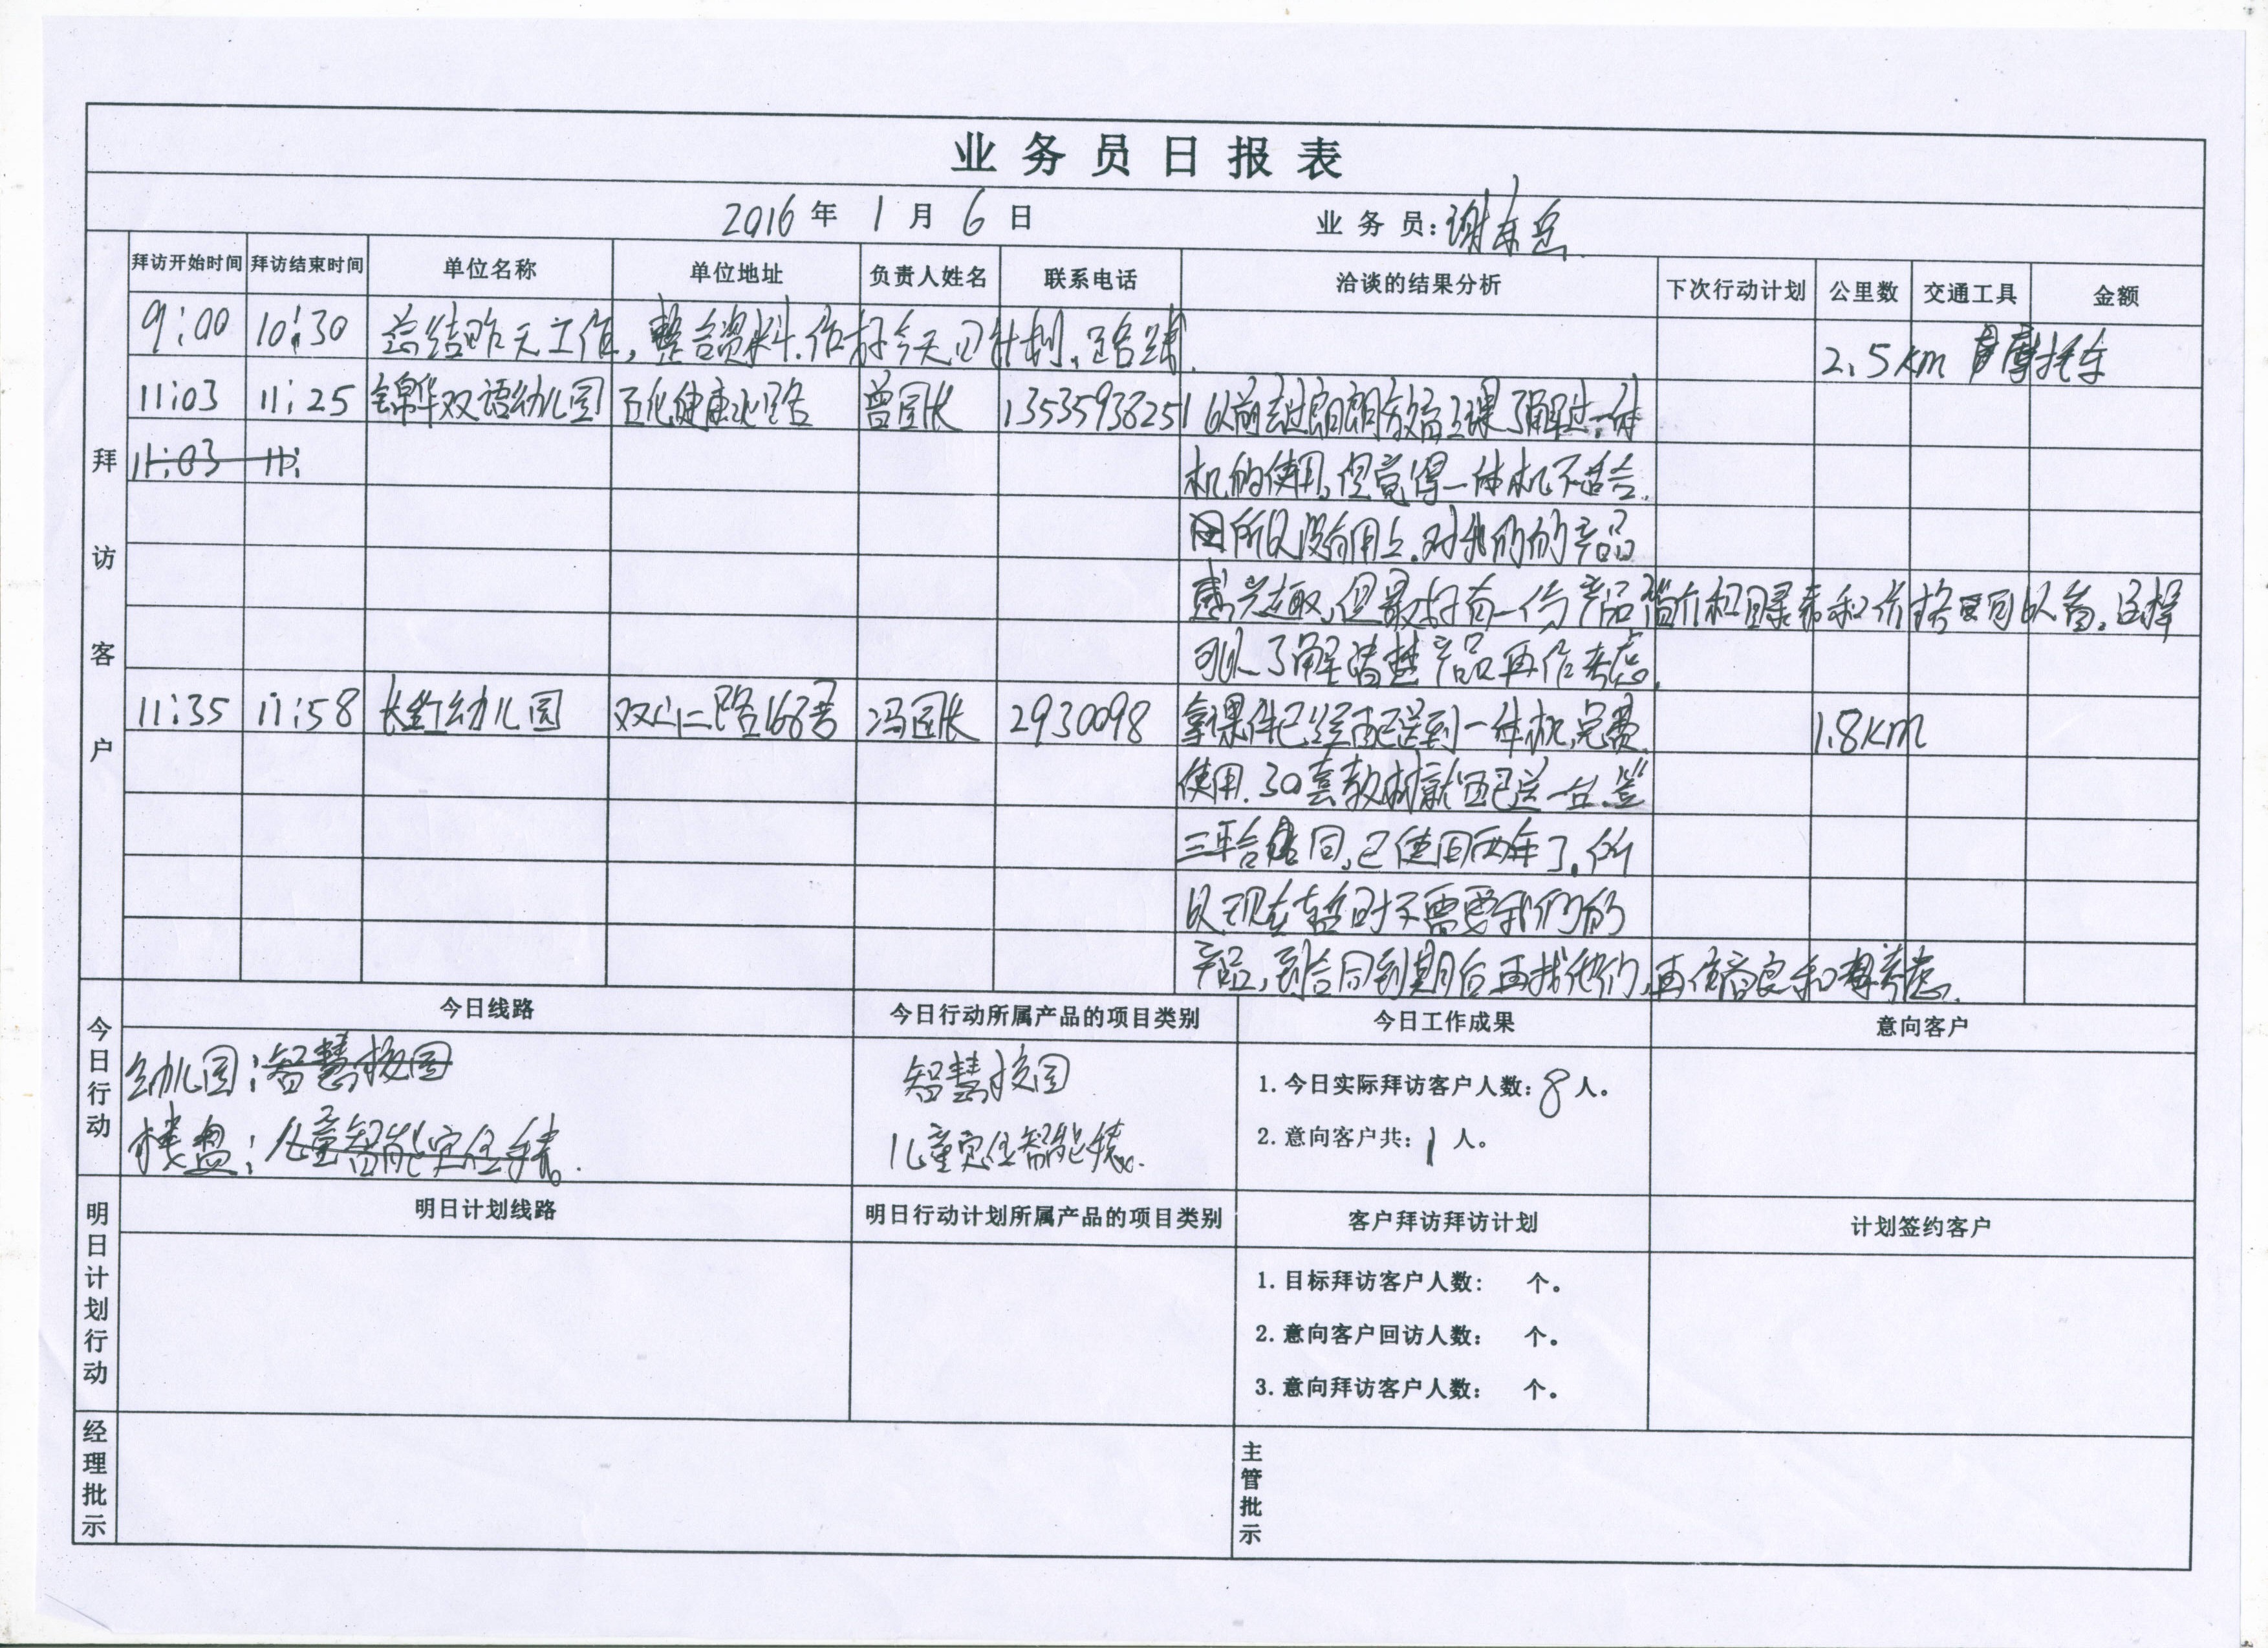 业务员日报表
2016年 1月 6日 业务员:谢东岳
拜访开始时间 拜访结束时间 单位名称 单位地址 负责人姓名 联系电话 洽谈的结果分析 下次行动计划 公里数 交通工具 金额
拜访客户
9:00 10:30 总结昨天工作,整合资料.作好今天的计划,路线. 2.5km 摩托车
11:03 11:25 锦华双语幼儿园 健康北路 曾园长 13535938251 以前去过朗朗教育上课了解过一体
11:03 11:
机的使用,但觉得一体机不适合.
所以没有用上.对我们的产品
感兴趣,但最好有一份产品简介和目录表和价格可以看.这样
可以了解清楚产品再作考虑.
11:35 11:58 长红幼儿园 双山二路168号 冯园长 2930098 拿课件已经配送到一体机,免费 1.8km
使用.30套教材就配送一台.签
三年合同,已使用两年了.所
以现在暂时不需要我们的
产品,到合同到期后再找他们,再作商良和考虑.
今日行动
今日线路 今日行动所属产品的项目类别 今日工作成果 意向客户
幼儿园:智慧校园 智慧校园 1.今日实际拜访客户人数:8人。
楼盘:儿童智能定位手表. 儿童定位智能手表. 2.意向客户共:1人。
明日计划行动
明日计划线路 明日行动计划所属产品的项目类别 客户拜访拜访计划 计划签约客户
1.目标拜访客户人数: 个。
2.意向客户回访人数: 个。
3.意向拜访客户人数: 个。
经理批示 主管批示